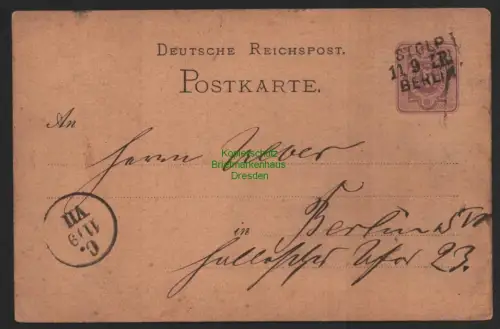 DEUTSCHE REICHSPOST.
POSTKARTE.
STOLP
11 9
BERLIN
An
Herrn Weber
in Berlin SW
Hallesches Ufer 23.
C.
11/9
VII
Kopierschutz
Briefmarkenhaus
Dresden